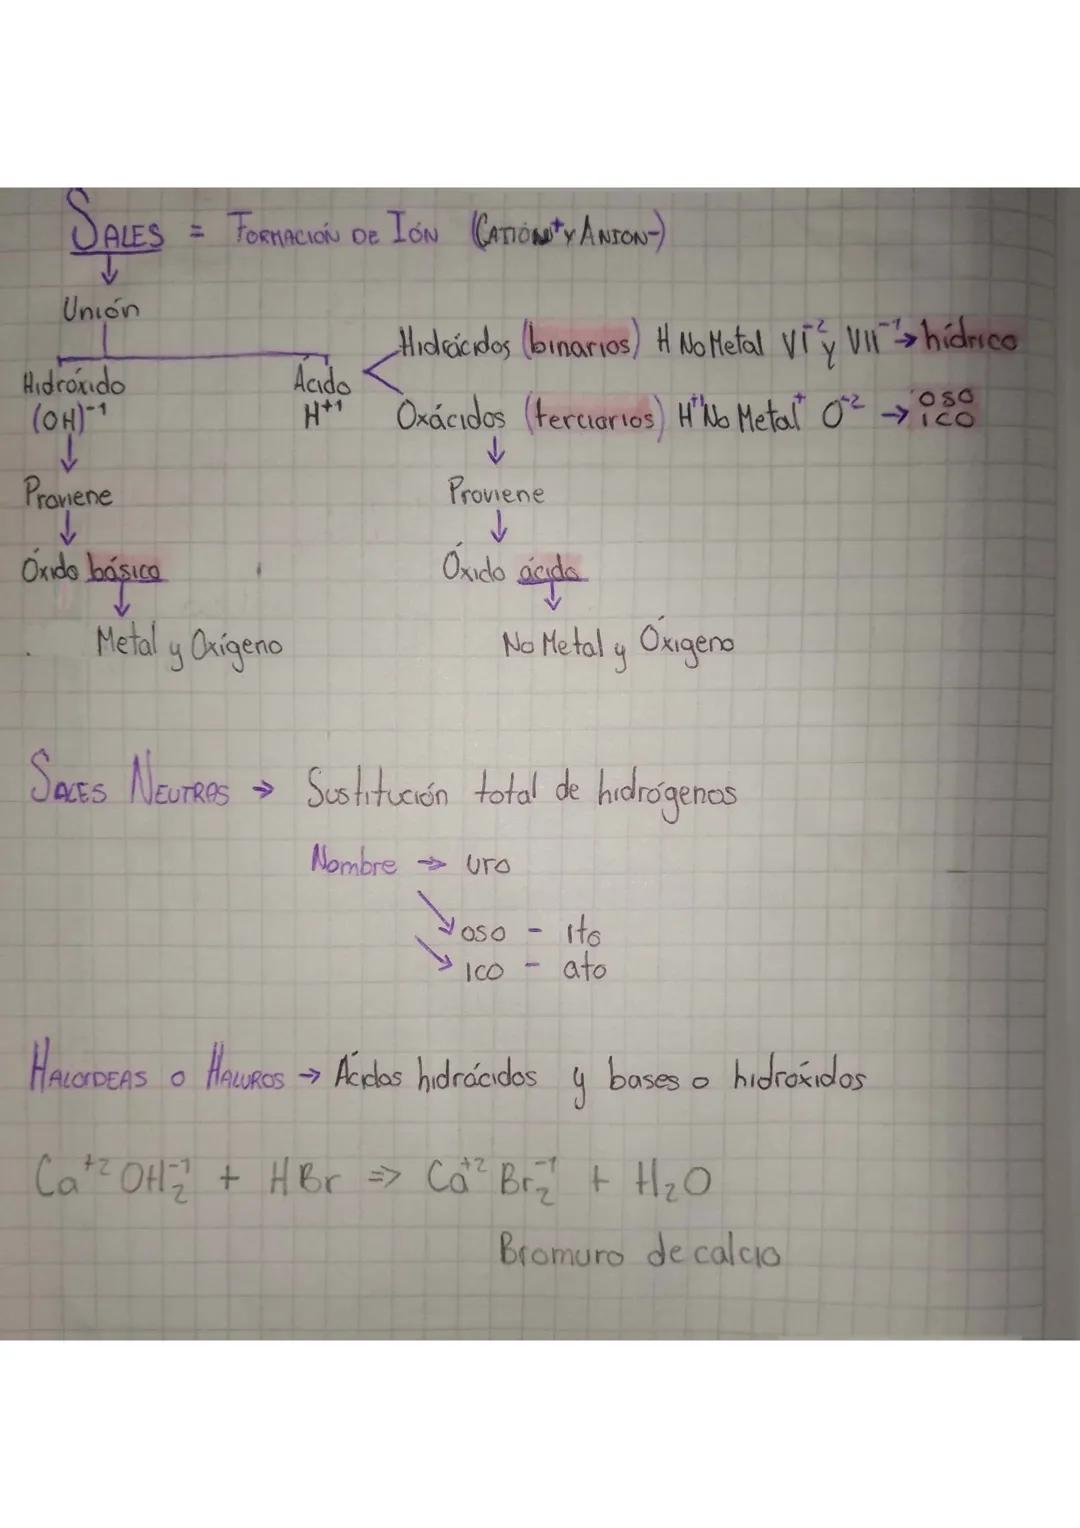 SALES = FORMACIÓN DE IÓN (CATIÓN+ Y ANION-)
Unión
Hidrácidos (binarios) H No Metal VI⁻² y VII⁻¹ → hídrico
Hidróxido
(OH)⁻¹
Ácido
H⁺¹
Oxácidos (terciarios) H⁺¹ No Metal⁺ O⁻² → oso
ico
Proviene
Proviene
Óxido básico
Óxido ácido
Metal y Oxígeno
No Metal y Óxigeno
SALES NEUTRAS → Sustitución total de hidrógenos
Nombre → uro
oso - ito
ico - ato
HALOIDEAS O HALUROS → Ácidos hidrácidos y bases o hidróxidos
Ca⁺² OH₂⁻¹ + HBr ⇒ Ca⁺² Br₂⁻¹ + H₂O
Bromuro de calcio